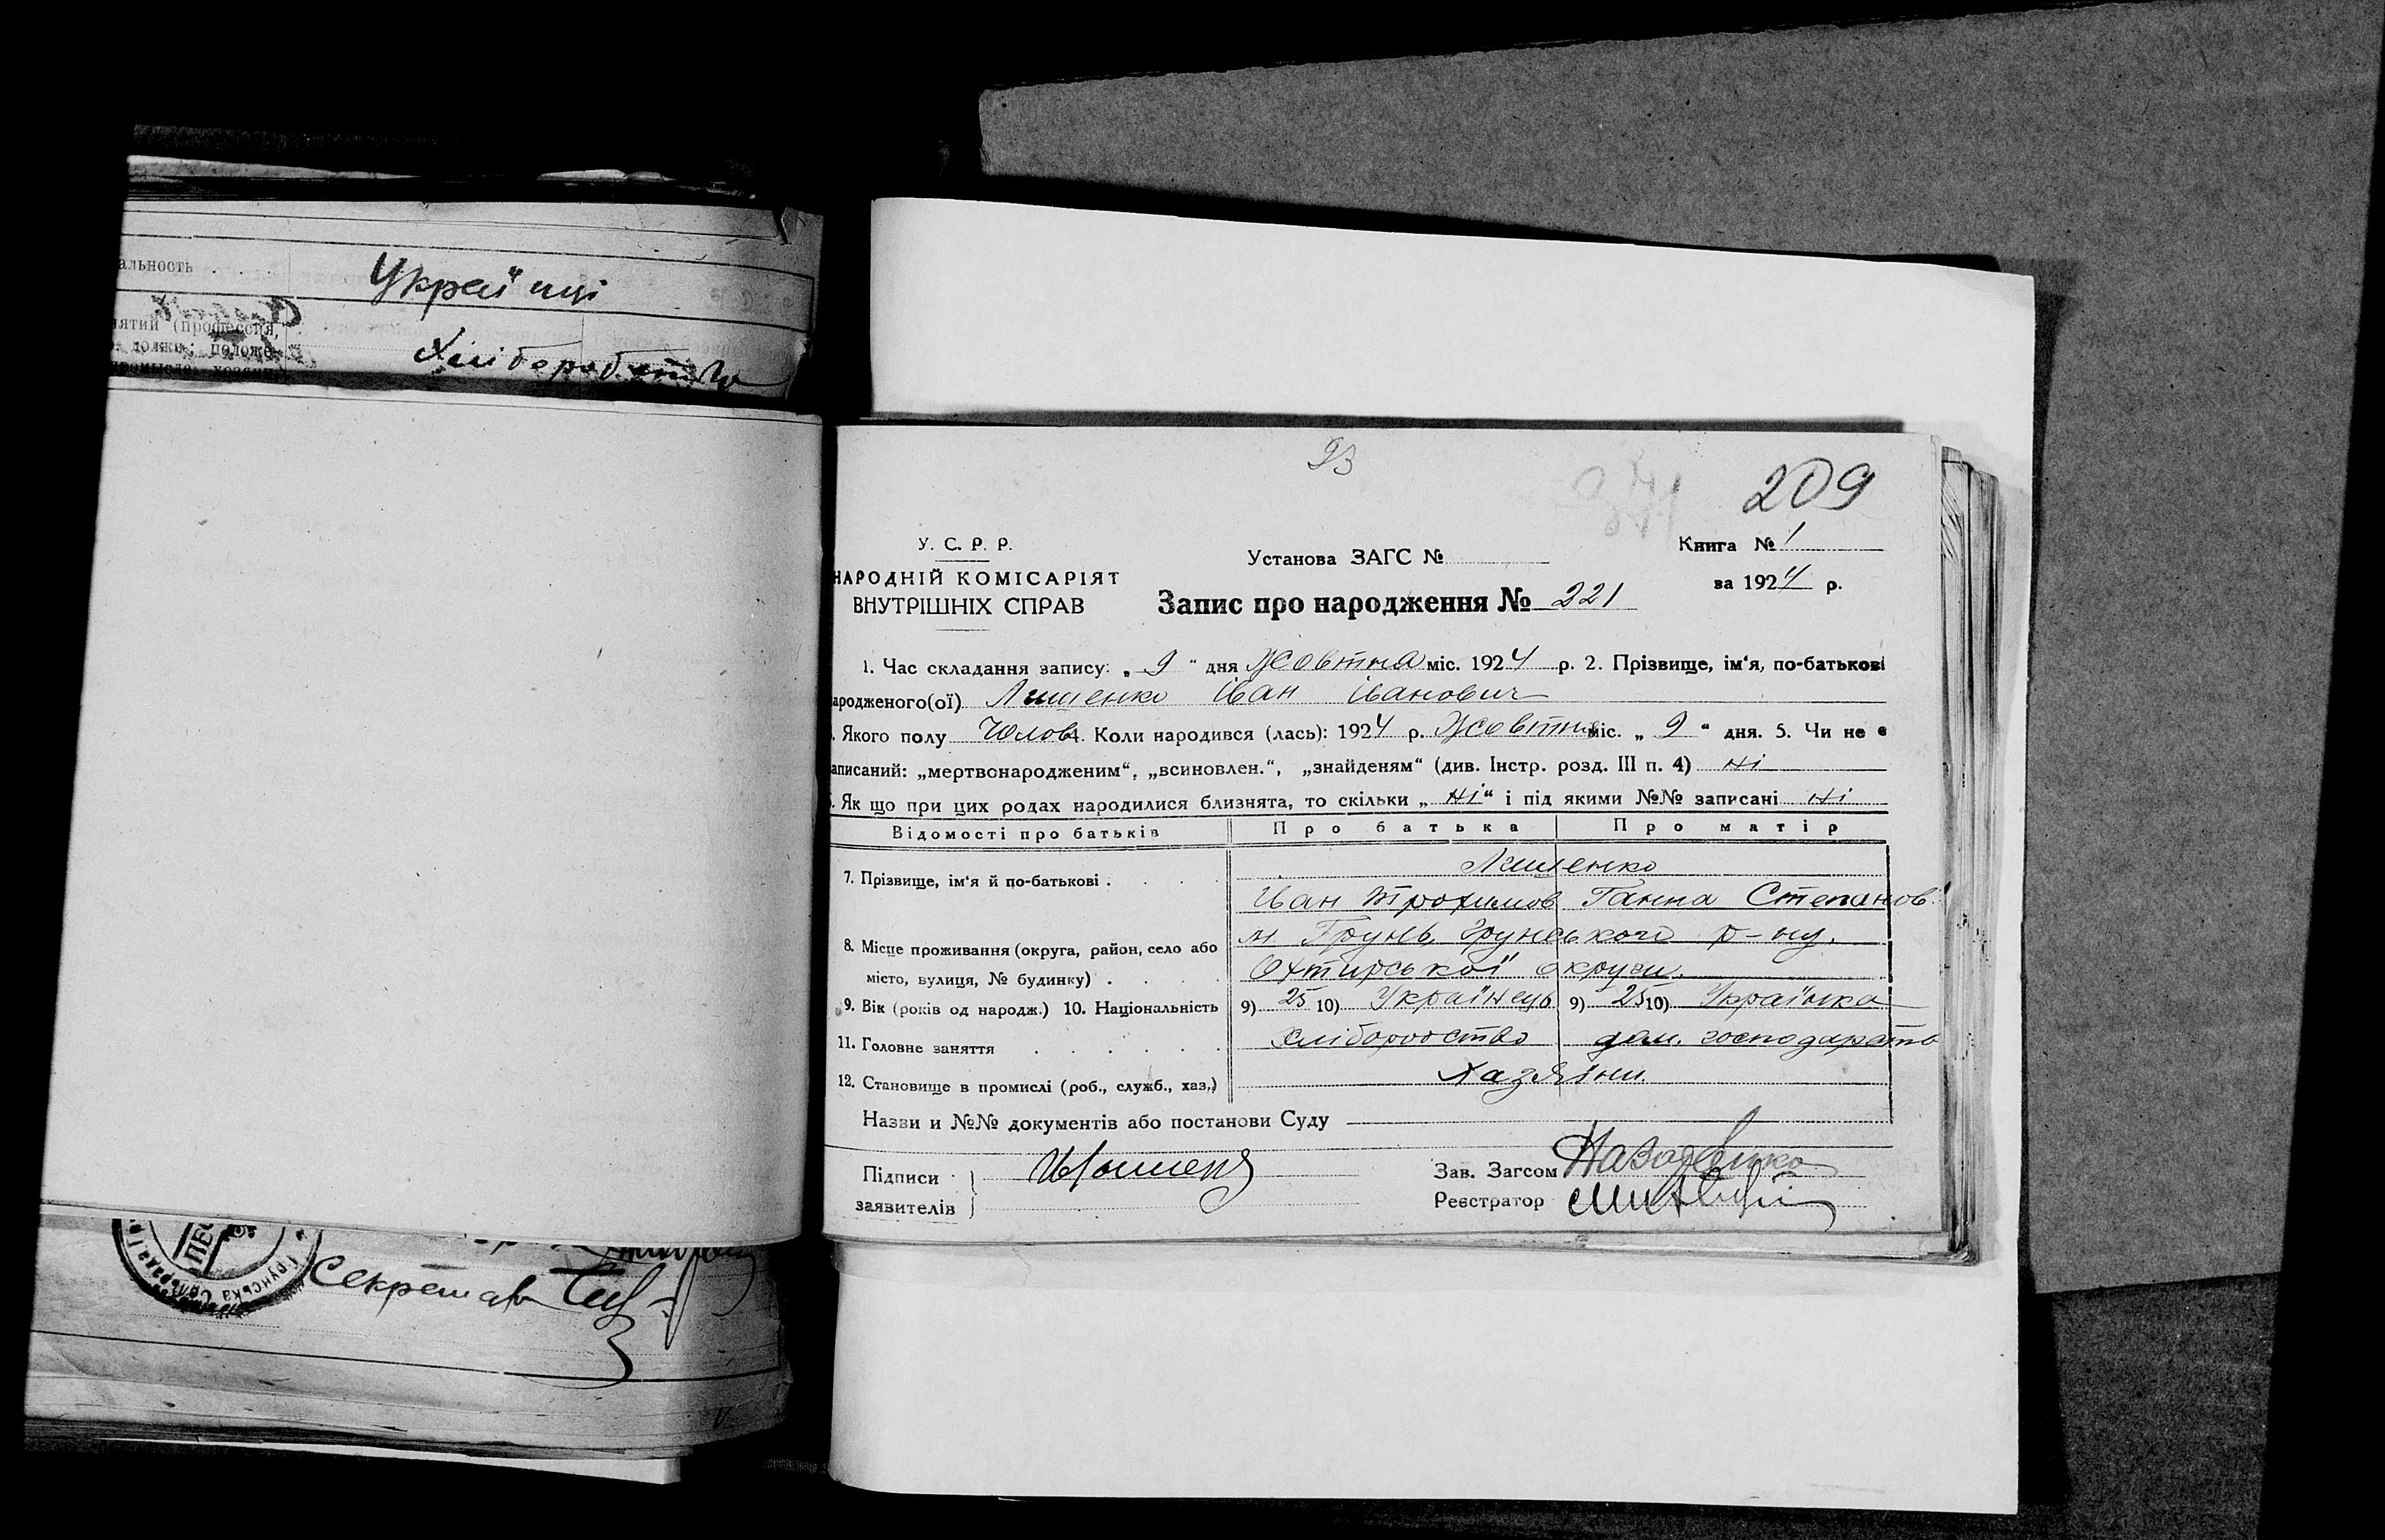 альность . . . Украінці
нятий (профессия,
должн; положе-
промысле: хозяин
Хліборобство
Секретар
93
371 209
У. С. Р. Р.
НАРОДНІЙ КОМІСАРІЯТ
ВНУТРІШНІХ СПРАВ
Установа ЗАГС №
Запис про народження № 221
Книга № 1
за 1924 р.
1. Час складання запису: „ 9 “ дня Жовтня міс. 1924 р. 2. Прізвище, ім‘я, по-батькові
ародженого(ої) Лишенко Іван Іванович
. Якого полу Чолов 4. Коли народився (лась): 1924 р. Жовтня міс. „ 9 “ дня. 5. Чи не є
аписаний: „мертвонародженим“, „всиновлен.“, „знайденям“ (див. Інстр. розд. III п. 4) Ні
. Як що при цих родах народилися близнята, то скільки „ Ні “ і під якими №№ записані Ні
Відомості про батьків Про батька Про матір
Лишенко
7. Прізвище, ім‘я й по-батькові . . . . Іван Трохимов Ганна Степанов.
8. Місце проживання (округа, район, село або м Грунь, Грунського р-ну.
місто, вулиця, № будинку) . . . . Охтирської округи.
9. Вік (років од народж.) 10. Національність 9) 25 10) Українець 9) 25 10) Українка
11. Головне заняття . . . . . . Хліборобство дом. господарств
12. Становище в промислі (роб., служб., хаз.) Хазяіни.
Назви и №№ документів або постанови Суду
Підписи
заявителів
Зав. Загсом
Реєстратор